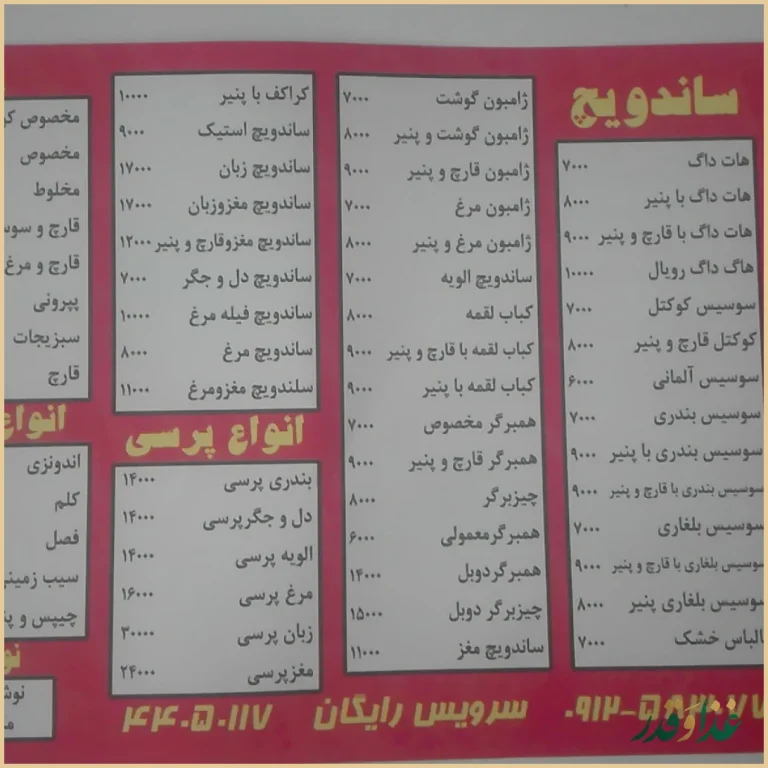 ساندویچ
هات داگ ۷۰۰۰
هات داگ با پنیر ۸۰۰۰
هات داگ با قارچ و پنیر ۹۰۰۰
هاگ داگ رویال ۱۰۰۰۰
سوسیس کوکتل ۷۰۰۰
کوکتل قارچ و پنیر ۸۰۰۰
سوسیس آلمانی ۶۰۰۰
سوسیس بندری ۷۰۰۰
سوسیس بندری با پنیر ۹۰۰۰
سوسیس بندری با قارچ و پنیر ۹۰۰۰
سوسیس بلغاری ۷۰۰۰
سوسیس بلغاری با قارچ و پنیر ۹۰۰۰
سوسیس بلغاری پنیر ۸۰۰۰
کالباس خشک ۷۰۰۰
ژامبون گوشت ۷۰۰۰
ژامبون گوشت و پنیر ۸۰۰۰
ژامبون قارچ و پنیر ۹۰۰۰
ژامبون مرغ ۷۰۰۰
ژامبون مرغ و پنیر ۸۰۰۰
ساندویچ الویه ۷۰۰۰
کباب لقمه ۸۰۰۰
کباب لقمه با قارچ و پنیر ۹۰۰۰
کباب لقمه با پنیر ۹۰۰۰
همبرگر مخصوص ۷۰۰۰
همبرگر قارچ و پنیر ۹۰۰۰
چیزبرگر ۸۰۰۰
همبرگرمعمولی ۶۰۰۰
همبرگردوبل ۱۴۰۰۰
چیزبرگر دوبل ۱۵۰۰۰
ساندویچ مغز ۱۱۰۰۰
کراکف با پنیر ۱۰۰۰۰
ساندویچ استیک ۹۰۰۰
ساندویچ زبان ۱۷۰۰۰
ساندویچ مغزوزبان ۱۷۰۰۰
ساندویچ مغزوقارچ و پنیر ۱۲۰۰۰
ساندویچ دل و جگر ۷۰۰۰
ساندویچ فیله مرغ ۱۰۰۰۰
ساندویچ مرغ ۸۰۰۰
سلندویچ مغزومرغ ۱۱۰۰۰
انواع پرسی
بندری پرسی ۱۴۰۰۰
دل و جگرپرسی ۱۴۰۰۰
الویه پرسی ۱۴۰۰۰
مرغ پرسی ۱۶۰۰۰
زبان پرسی ۳۰۰۰۰
مغزپرسی ۲۴۰۰۰
مخصوص
مخصوص
مخلوط
قارچ و
قارچ و مرغ
پپرونی
سبزیجات
قارچ
انواع
اندونزی
کلم
فصل
سیب زمینی
چیپس و
سرویس رایگان
۴۴۰۵۰۱۱۷
غذا و قدر